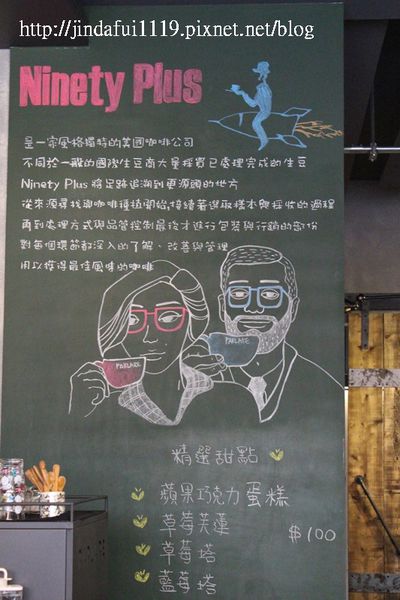 http://jindafui1119.pixnet.net/blog
Ninety Plus
是一家風格獨特的美國咖啡公司
不同於一般的國際生豆商大量採買已處理完成的生豆
Ninety Plus 將足跡追溯到更源頭的地方
從來源尋找與咖啡種植開始,接續著選取樣本與採收的過程
再到處理方式與品管控制最後才進行包裝與行銷的部份
對每個環節都深入的了解、改善與管理
用以獲得最佳風味的咖啡
PARLARE
PARLARE
精選甜點
蘋果巧克力蛋糕
草莓芙蓮 $100
草莓塔
藍莓塔